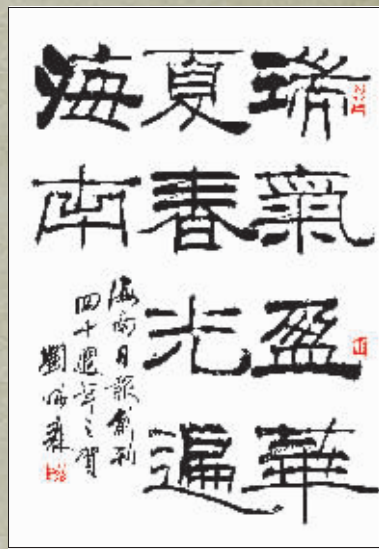 瑞氣盈華
夏春光遍
海南
海南日報創刊
四十週年之賀
劉炳森